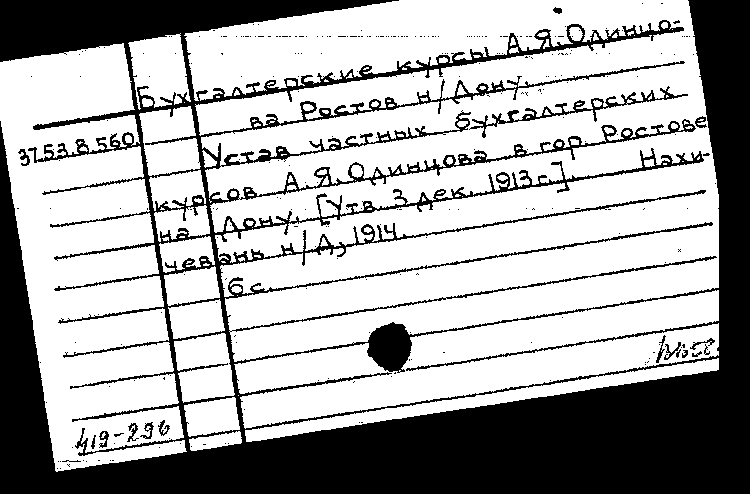 Бухгалтерские курсы А.Я.Одинцо-
ва. Ростов н/Дону.
37.53.8.560.
Устав частных бухгалтерских
курсов А.Я.Одинцова в гор. Ростове
на Дону. [Утв. 3 дек. 1913г.]. Нахи-
чевань н/Д, 1914.
6 с.
419-296